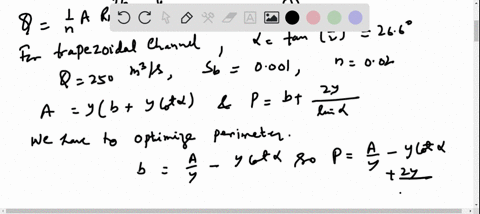 Q = 1/n A R
For trapezoidal channel , α = tan (1/2) = 26.6°
Q = 250 m³/s, S_b = 0.001, n = 0.02
A = y(b + y cot α) & P = b + 2y/sin α
We have to optimize perimeter.
b = A/y - y cot α so P = A/y - y cot α
+ 2y